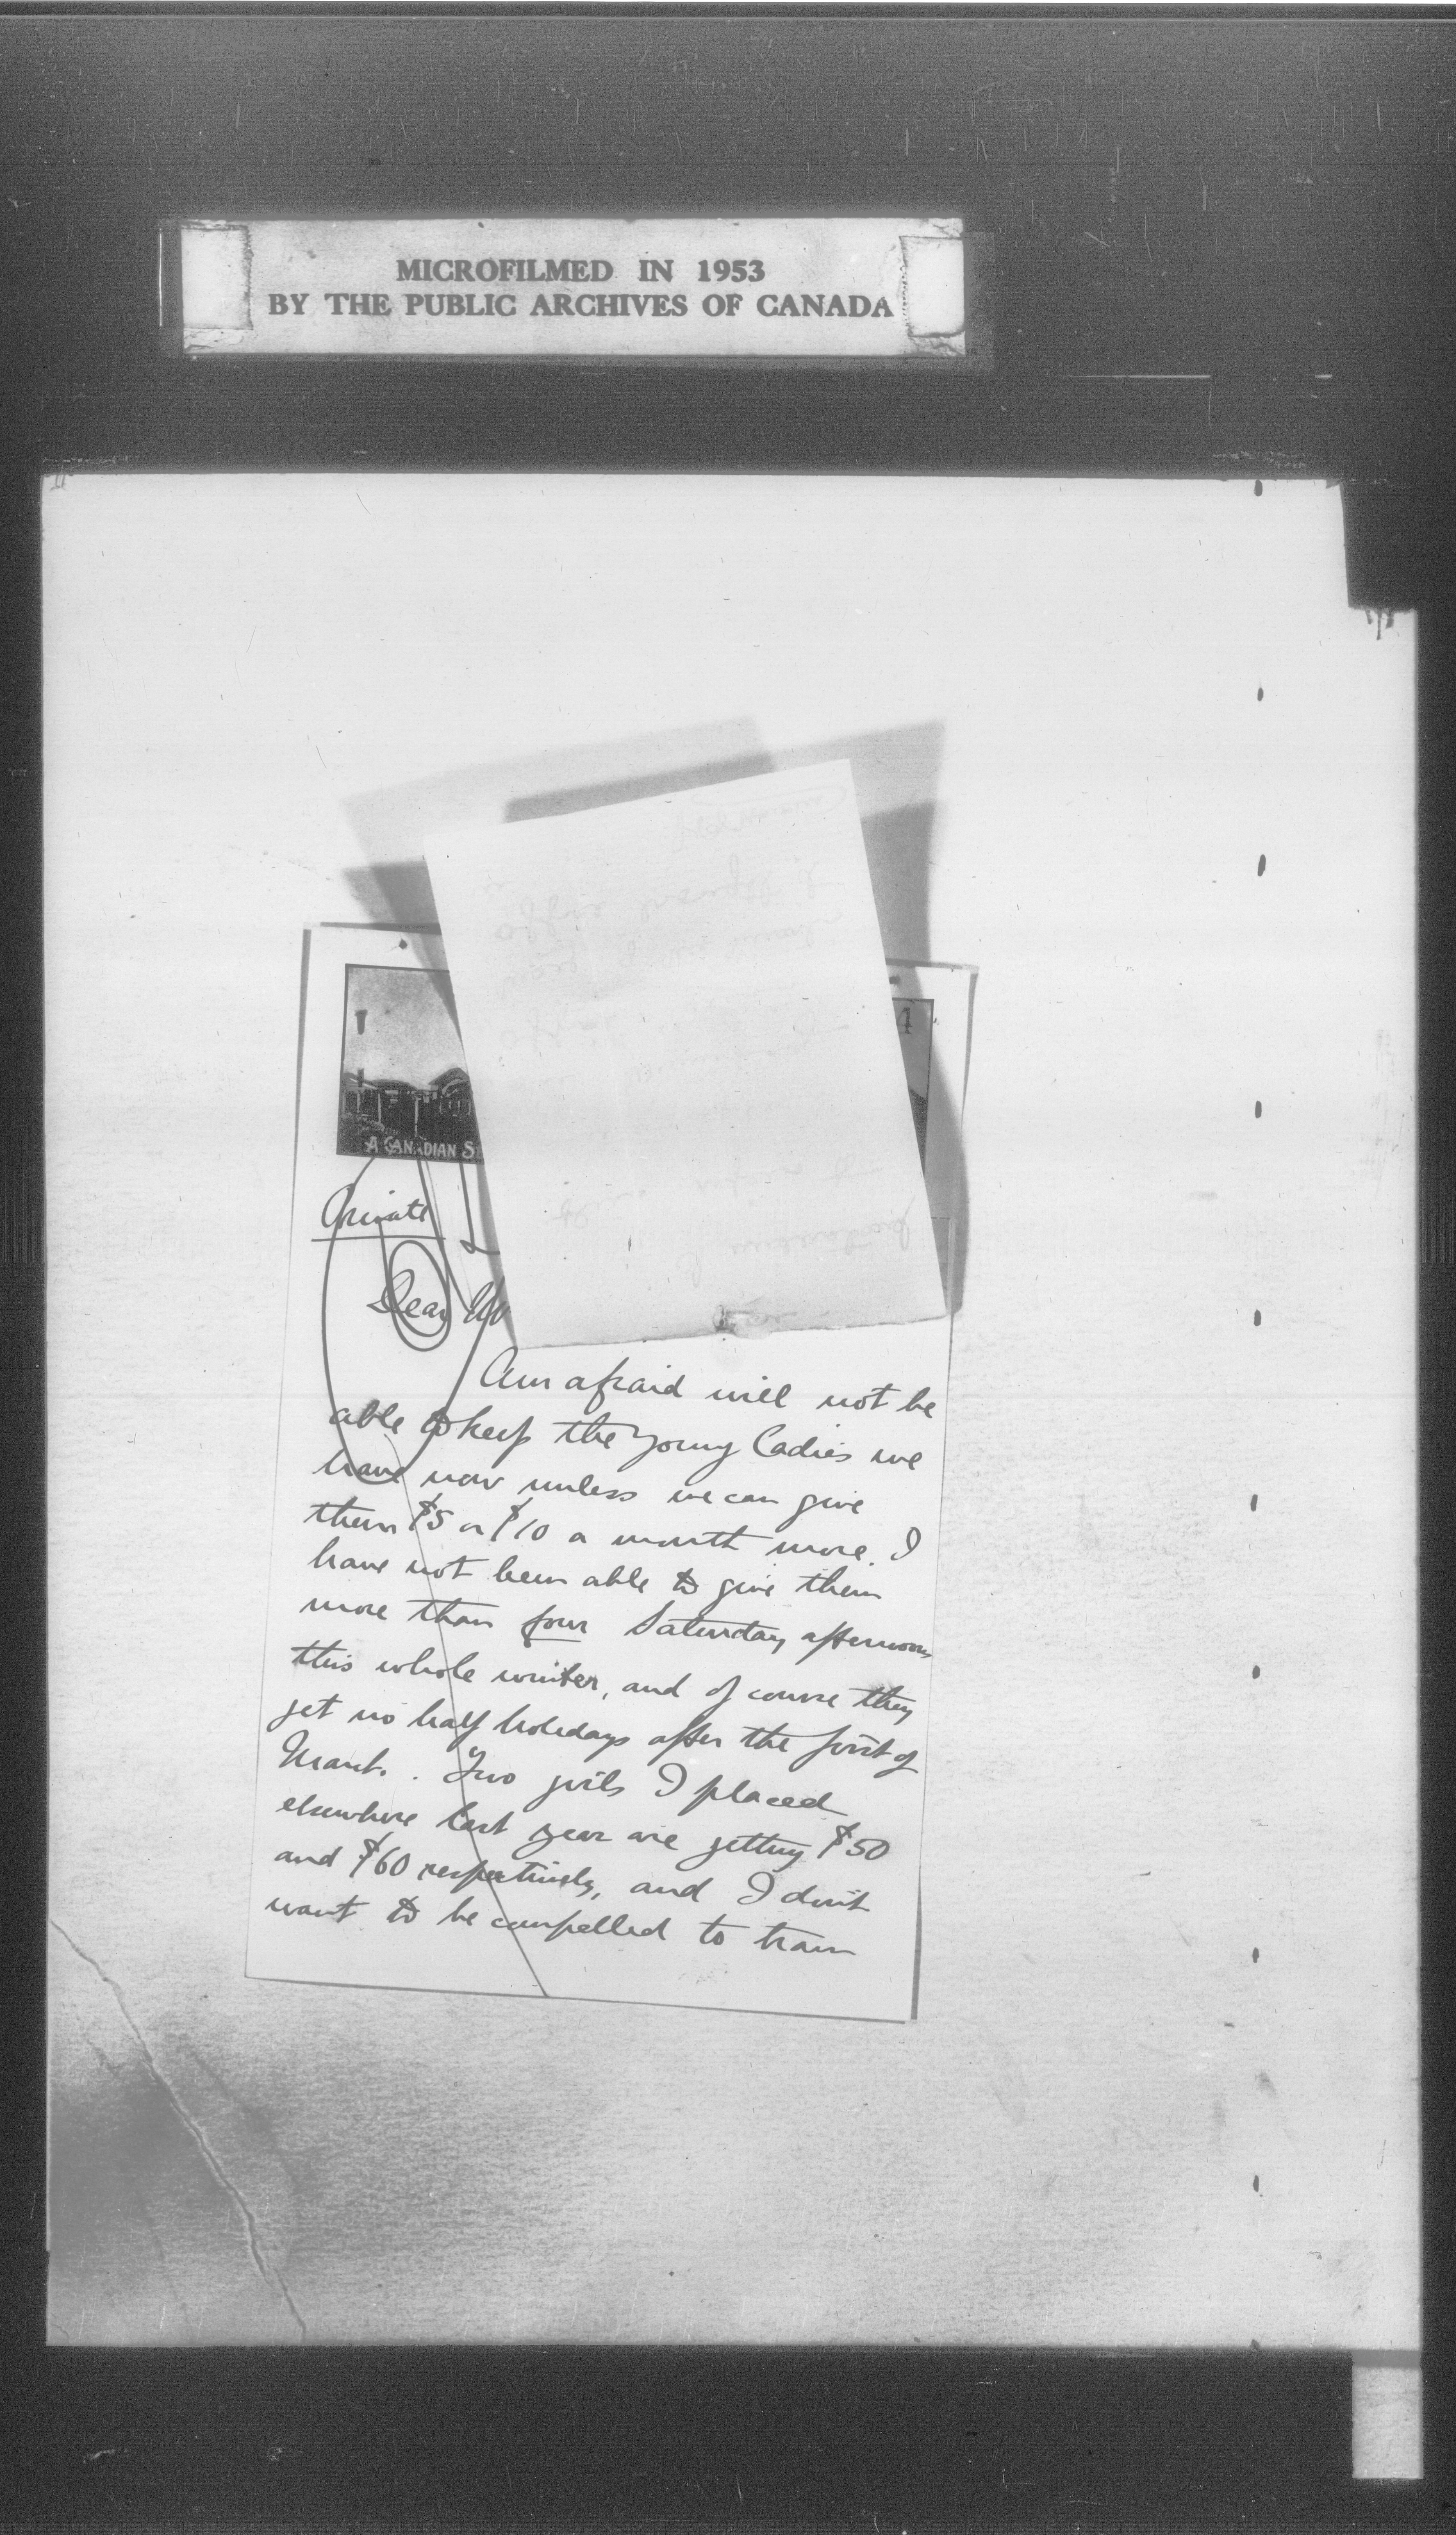 MICROFILMED IN 1953
BY THE PUBLIC ARCHIVES OF CANADA
4
A CANADIAN S
Private
Dear
Am afraid will not be
able to keep the young ladies we
have now unless we can give
them $5 or $10 a month more. I
have not been able to give them
more than four Saturday afternoons
this whole winter, and of course they
get no half holidays after the first of
March. Two girls I placed
elsewhere last year are getting $50
and $60 respectively, and I don't
want to be compelled to train